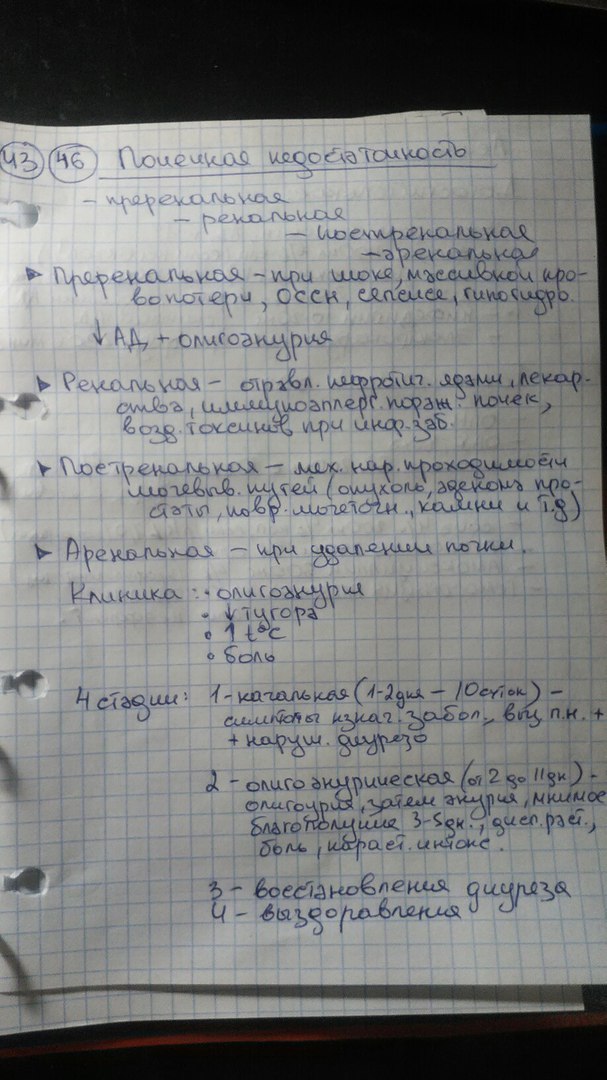 43 46 Почечная недостаточность
- преренальная
- ренальная
- постренальная
- аренальная
▸ Преренальная - при шоке, массивной кро-
вопотери, ОССН, сепсисе, гипотидр.
↓ АД, + олигоанурия
▸ Ренальная - отравл. нефротич. ядами, лекар-
ства, иммуноаллерг. пораж. почек,
возд. токсинов при инф. заб.
▸ Постренальная - мех. нар. проходимости
мочевыв. путей (опухоль, аденома про-
статы, повр. мочеточн., камни и т.д)
▸ Аренальная - при удалении почки.
Клиника: • олигоанурия
• ↓ тугора
• ↑ t°C
• боль
4 стадии: 1 - начальная (1-2 дня - 10 суток) -
симптомы изнач. забол., выз. п.н. +
+ наруш. диуреза
2 - олигоанурическая (от 2 до 11 дн.) -
олигоурия, затем анурия, мнимое
благополучие 3-5 дн., дисп. раст.,
боль, нараст. интокс.
3 - восстановления диуреза
4 - выздоравления